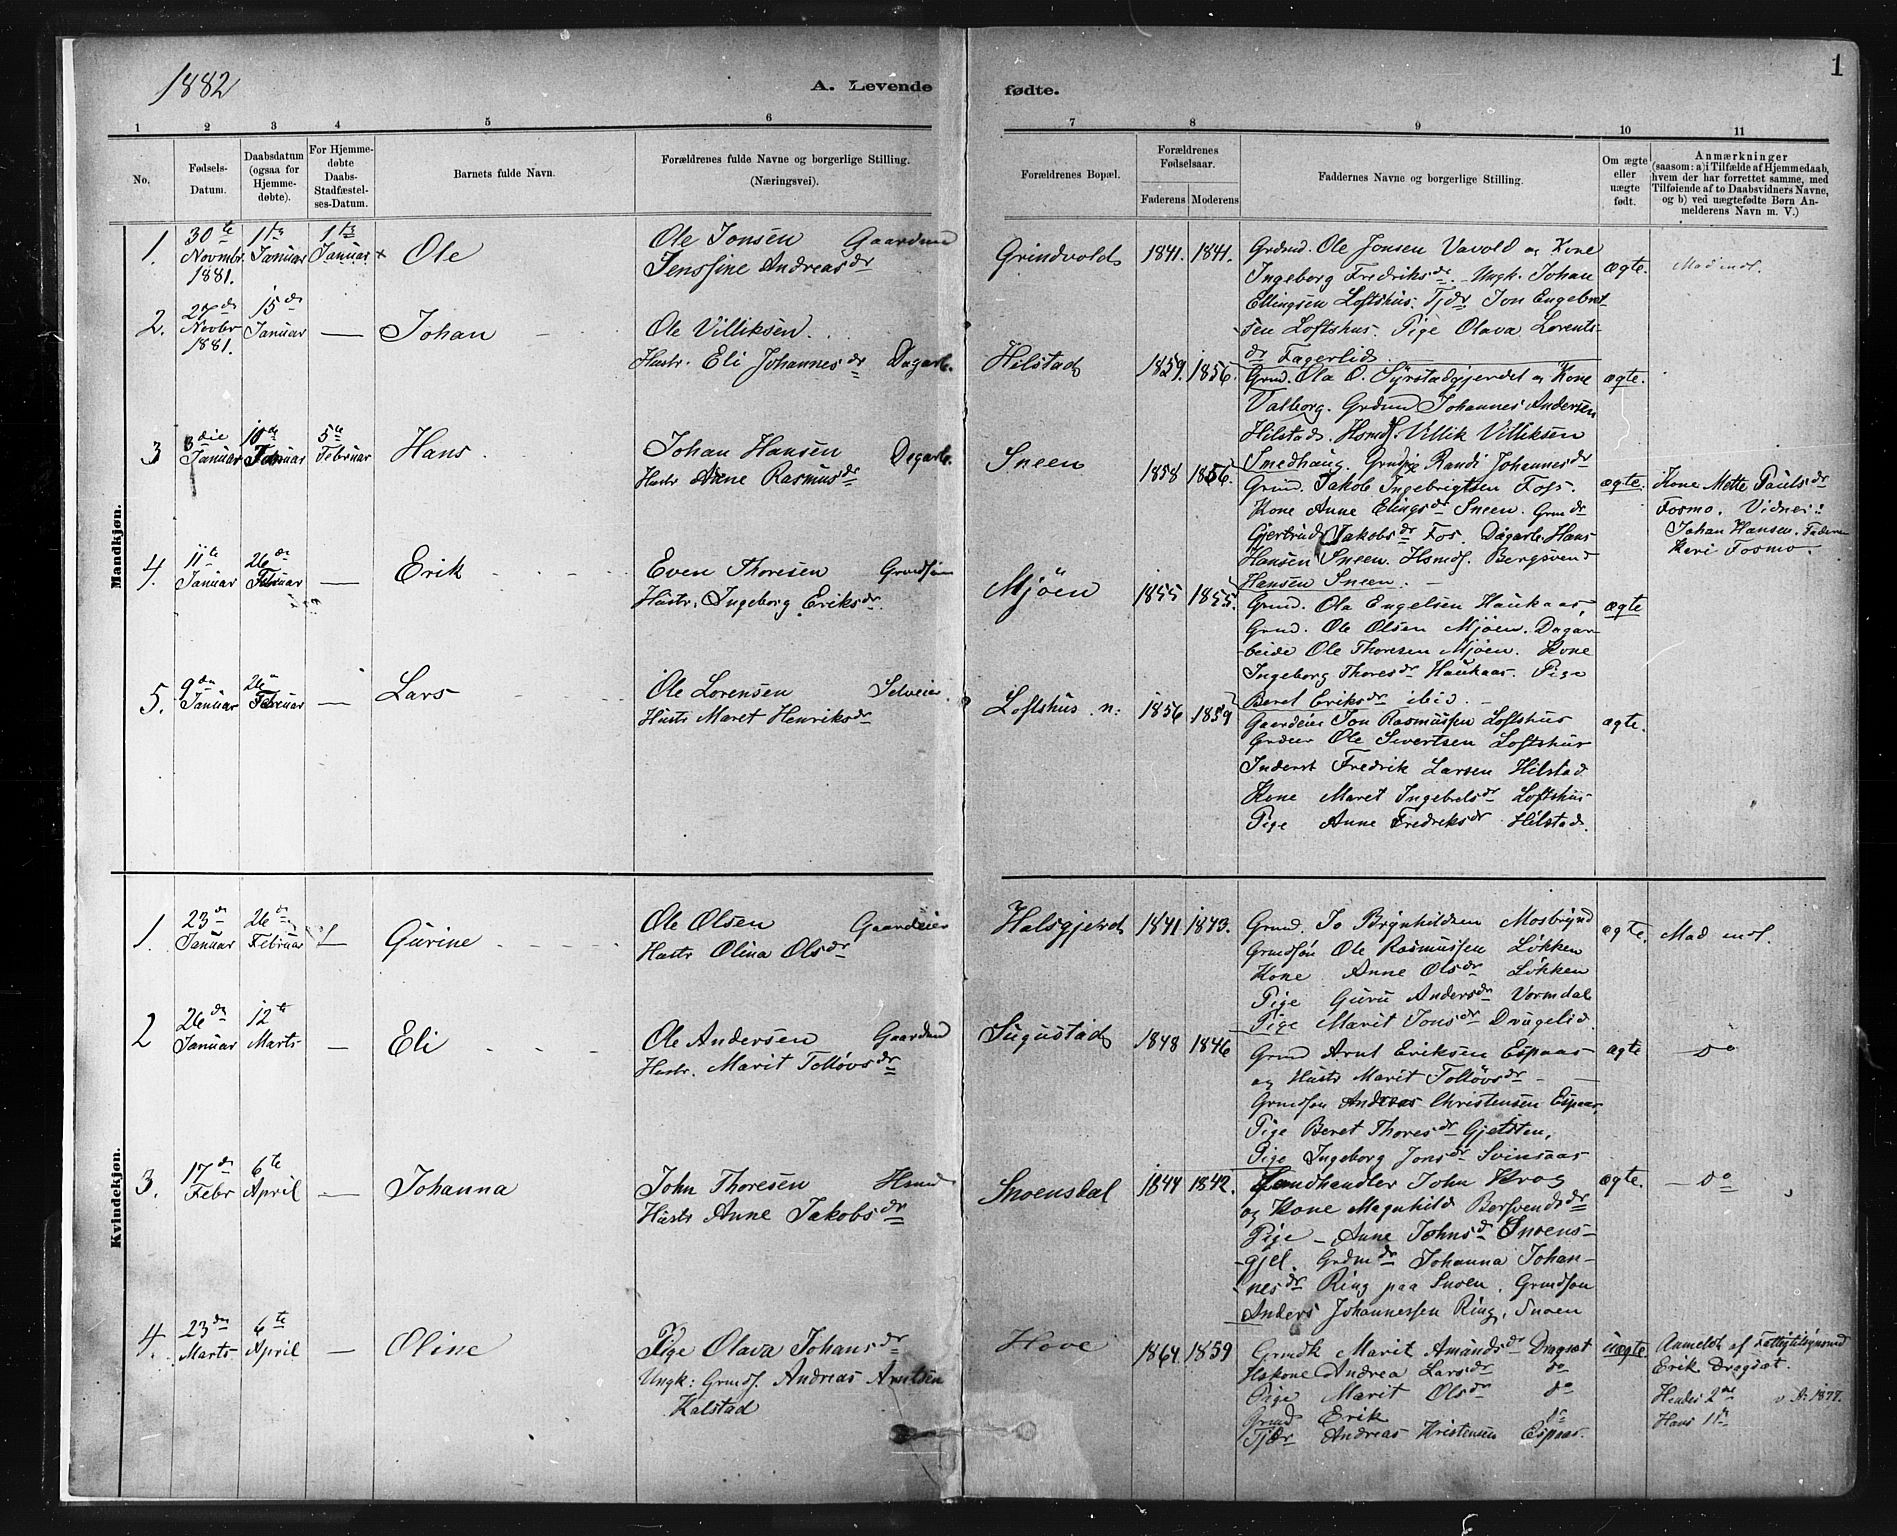 1882
A. Levende fødte.
1
1 2 3 4 5 6 7 8 9 10 11
No.
Fødsels-Datum.
Daabsdatum (ogsaa for Hjemme-døbte).
For Hjemme-døbte Daabs-Stadfæstel-ses-Datum.
Barnets fulde Navn.
Forældrenes fulde Navne og borgerlige Stilling. (Næringsvei).
Forældrenes Bopæl.
Forældrenes Fødselsaar.
Faderens Moderens
Faddernes Navne og borgerlige Stilling.
Om ægte eller uægte født.
Anmærkninger (saasom: a) i Tilfælde af Hjemmedaab, hvem der har forrettet samme, med Tilføiende af to Daabsvidners Navne, og b) ved uægtefødte Børn An-melderens Navn m. V.)
Mandkjøn.
1. 30te Novmbr 1881. 1ste Januar 1ste Januar Ole
Ole Jonsen Gaardmd
Jenssine Andreasdr
Grindvold 1841. 1841.
Grdmd. Ole Jonsen Vavold og Kone
Ingeborg Fredriksdr. Ungk. Johan
Ellingsen Loftshus. Tjdr Jon Engebret-
sen Loftshus. Pige Olava Lorents-
dr Fagerlid.
ægte.
2. 27de Novbr 1881. 15de Januar — Johan
Ole Villiksen.
Hustr. Eli Johannesdr Dagarb.
Hilstad 1859. 1856.
Grmd. Ola O. Syrstadgjerdet og Kone
Valborg. Grdmd Johannes Andersen
Hilstad. Hsmds. Villik Villiksen
Smedhaug. Grmdpge Randi Johannesdr
ægte.
3 3die Januar 10de Januar 5te Februar Hans
Johan Hansen Dagarb.
Hustr Anne Rasmusdr
Sneen 1858 1856.
Grmd. Jakob Ingebrigtsen Fos.
Kone Anne Elingsdr Sneen. Grmdr
Gjertrud Jakobsdr Fos. Dagarb. Hans
Hansen Sneen. Hsmds. Bergsvend
Hansen Sneen. —
ægte.
Kone Mette Paulsdr
Fosmo. Vidner:
Johan Hansen. Faderen
Kari Fosmo.
4. 11te Januar 26de Februar — Erik
Even Thoresen Grmdsøn
Hustr. Ingeborg Eriksdr
Mjøen 1855 1855.
Grmd. Ola Engelsen Haukaas,
Grmd. Ole Olsen Mjøen. Dagar-
beide Ole Thoresen Mjøen. Kone
Ingeborg Thoresdr Haukaas. Pige
Beret Eriksdr ibid. —
ægte
5. 9de Januar 26de Februar — Lars
Ole Lorensen Selveier
Hustr Maret Henriksdr
Loftshus n: 1856 1859
Gaardeier Jon Rasmussen Loftshus
Grdeier Ole Sivertsen Loftshus
Inderst Fredrik Larsen Hilstad.
Kone Maret Ingebrdsdr Loftshus
Pige Anne Fredriksdr Hilstad.
ægte.
Kvindekjøn.
1. 23de Januar 26de Februar — Gurine
Ole Olsen Gaardeier
Hustr Olina Olsdr
Halsgjerde 1841 1843.
Grmd. Jo Brynhildsen Mosbrynd
Grmdsøn Ole Rasmussen Løkken
Kone Anne Olsdr Løkken
Pige Guru Andersdr Vormdal
Pige Marit Jonsdr Dragelid.
ægte. Mad mdl.
2 26de Januar 12te Marts — Eli
Ole Andersen Gaardmd
Hustr. Marit Tolløvsdr
Sugustad 1848 1846
Grmd Arnt Eriksen Espaas
og Hustr Marit Tolløvsdr — —
Grmdsøn Andreas Christensen Espaas
Pige Beret Thoresdr Gjetsten,
Pige Ingeborg Jonsdr Svinsaas
ægte — do
3. 17de Febr 6te April — Johanna
John Thoresen Hsmd
Hustr Anne Jakobsdr
Snoensdal 1844 1842.
Landhandler John Krog
og Kone Magnhild Bersvendsdr
Pige — Anne Johnsdr Snoens-
gjel. Grdmdr Johanna Johan-
nesdr Ring paa Snoen. Grmdsøn
Anders Johannessen Ring, Snoen
ægte. — do
4. 23de Marts 6te April — Oline
Pige Olava Johansdr
Ungk: Grmds. Andreas Arntsen
Kalstad
Hove 1864 1859
Grmdk Marit Amundsdr Dragsæt
Hskone Andrea Larsdr do
Pige Marit Olsdr do
Grmd Erik do
Tjdr Andreas Kristensen Espaas.
uægte
Anmeldt af
Erik Dragsæt.
Hendes 2det
Hans 1ste